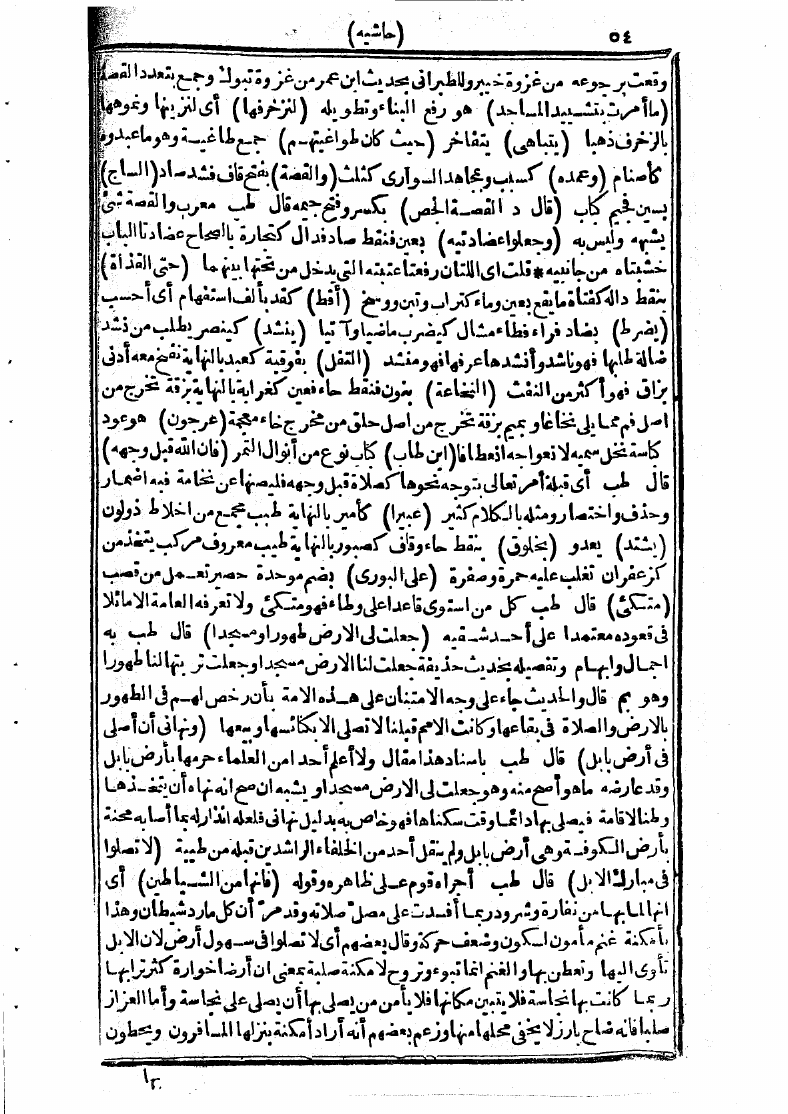 ٥٤ (حاشيه)
وقعت برجوعه من غزوة خيبر وللطبراني بحديث ابن عمر من غزوة تبوك وجمع بتعدد القصة
(ما أمرت بتشييد المساجد) هو رفع البناء وتطويله (لتزخرفها) أى لتزينها وتموهها
بالزخرف ذهبا (يتباهى) يتفاخر (حيث كان طواغيتهم) جمع طاغية وهو ما عبدوه
كأصنام (وعمده) كسبب ومجاهد السوارى كثلث (والقصة) بفتح قاف فشد صاد (الساج)
بسين فجيم كباب (قال د القصة الجص) بكسر وفتح جيمه قال طب معرب والقصة شئ
يشبهه وليس به (وجعلوا عضادتيه) بعين فنقط صاد فدال ككتجارة بالصحاح عضادتا الباب
خشبتاه من جانبيه * قلت اى اللتان رفعتا عتبته التى يدخل من تحتها بينهما (حتى القذاة)
بنقط داله كفتاة ما يقع بعين وماء كتراب وتبن ووسخ (أقط) كقد بألف استفهام أى أحسب
(يضرط) بضاد فراء فطاء مشال كيضرب ماضيا وآتيا (ينشد) كينصر يطلب من نشد
ضالة طلبها فهو ناشد وأنشدها عرفها فهو منشد (التفل) بفوقية كعبد بالنهاية نفخ معه أدنى
بزاق فهو أكثر من النفث (النخاعة) بنون فنقط خاء فعين كغرابة بالنهاية بزقة تخرج من
اصل فم مما يلى نخاعا وبميم بزقة تخرج من اصل حلق من مخرج خاء معجمة (عرجون) هو عود
كاسة نخل سمى به لانعواجه انعطافا (ابن طاب) كباب نوع من أنواع التمر (فان الله قبل وجهه)
قال طب أى قبلة أمر تعالى بتوجه نحوها كصلاة قبل وجهه فليصنها عن نخامة فيه اضمار
وحذف واختصار ومثله بالكلام كثير (عبيرا) كأمير بالنهاية طيب مجمع من اخلاط ذو لون
(يشتد) يعدو (بخلوق) بنقط خاء وقاف كصبور بالنهاية طيب معروف مركب يتخذ من
كزعفران تغلب عليه حمرة وصفرة (على البورى) بضم موحدة حصير تعمل من قصب
(متكئ) قال طب كل من استوى قاعدا على وطاء فهو متكئ ولا تعرفه العامة الا مائلا
فى قعوده معتمدا على أحد شقيه (جعلت لى الارض طهورا ومسجدا) قال طب به
اجمال وابهام وتفصيله بحديث حذيفة جعلت لنا الارض مسجدا وجعلت تربتها لنا طهورا
وهو بم قال والحديث جاء على وجه الامتنان على هذه الامة بأن رخص لهم فى الطهور
بالارض والصلاة فى بقاعها وكانت الامم قبلنا لا تصلى الا بكنائسها وبيعها (ونهانى أن أصلى
فى أرض بابل) قال طب باسناد هذا مقال ولا أعلم أحدا من العلماء حرمها بأرض بابل
وقد عارضه ما هو أصح منه وهو جعلت لى الارض مسجدا ويشبه ان صح انه نهاه أن يتخذها
وطنا لاقامة فيصلى بها دائما وقت سكناها فهو خاص به بدليل نهانى فلعله انذار له بما أصابه محنة
بأرض الكوفة وهى أرض بابل ولم ينتقل أحد من الخلفاء الراشدين قبله من طيبة (لا تصلوا
فى مبارك الابل) قال طب أجراه قوم على ظاهره وقوله (فانها من الشياطين) أى
انها لما بها من نفارة وشرود ربما أفسدت على مصل صلاته وقد مر أن كل مارد شيطان وهذا
بأمكنة غنم مأمون لسكون وضعف حركة وقال بعضهم أى لا تصلوا فى سهول أرض لان الابل
تأوى اليها وتعطن بها والغنم انما تبوء وتروح لامكنة صلبة بمعنى ان أرضا خوارة كثر ترابها
ربما كانت بها نجاسة فلا يتبين مكانها فلا يأمن من يصلى بها أن يصلى على نجاسة وأما العزاز
صلبا فانه ضاح بارز لا يخفى محلها منها وزعم بعضهم أنه أراد أمكنة ينزلها المسافرون ويحطون
١٢٠